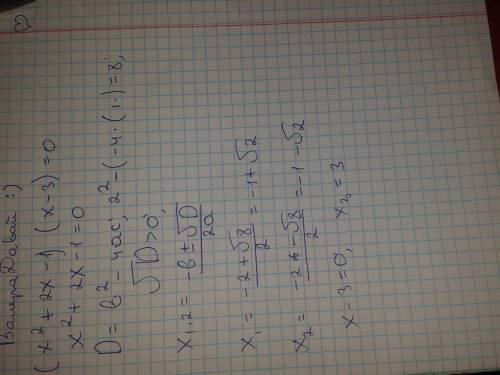 Валера Давай :)
(x² + 2x - 1) (x - 3) = 0
x² + 2x - 1 = 0
D = b² - 4ac; 2² - (-4 · (1 ·) = 8;
√D > 0;
x₁,₂ = -b ± √D / 2a
x₁ = -2 + √8 / 2 = -1 + √2
x₂ = -2 - √8 / 2 = -1 - √2
x - 3 = 0; x₃ = 3